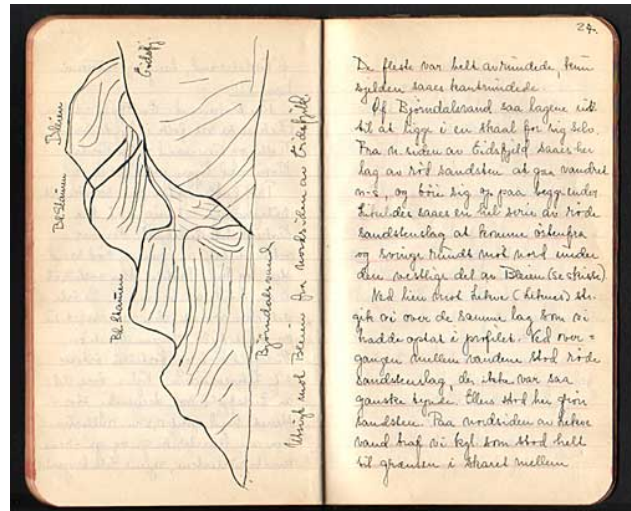 Bleien
Eidsfj.
Bl. Skaret
Bl. Skaret
Bjørndalsvand
Utsigt mot Bleien fra nordsiden av Eidsfjeld.
24.
De fleste var helt avrundede, kun
sjelden saaes kantrundede.
Of Bjørndalsvand saa lagene ut
til at ligge i en skaal for sig selv.
Fra n. siden av Eidsfjeld saaes her
lag av rød sandsten at gaa vandret
n-s, og bøie sig op paa begge ender
saaes en hel serie av røde
sandstenslag at komme østenfra
og svinge rundt mot nord under
den vestlige del av Bleien (se skisse)
Ned lien mot
gik vi over de samme lag som vi
hadde optat i profilet. Ved over=
gangen mellem vandene stod røde
sandstenslag, der ikke var saa
ganske tynde. Ellers stod her grøn
sandsten. Paa nordsiden av
vand traf vi kgl. som stod helt
til grænsen i skaret mellem